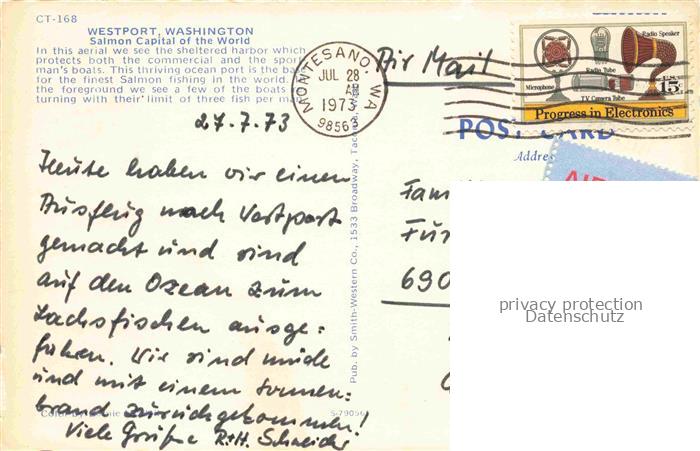 CT-168
WESTPORT, WASHINGTON
Salmon Capital of the World
In this aerial we see the sheltered harbor which
protects both the commercial and the sport
man's boats. This thriving ocean port is the ba
for the finest Salmon fishing in the world. I
the foreground we see a few of the boats
turning with their limit of three fish per ma
MONTESANO, WA
JUL 28
AM
1973
98563
Air Mail
Radio Speaker
Radio Tube
Microphone
TV Camera Tube
US 15c
Progress in Electronics
POST CARD
Addres
AIR
27.7.73
Heute haben wir einen
Ausflug nach Westport
gemacht und sind
auf den Ozean zum
Lachsfischen ausge=
fahren. Wir sind müde
und mit einem Sonnen=
brand zurückgekommen!
Viele Grüße R+H. Schneider
Pub. by Smith-Western Co., 1533 Broadway, Tacoma
S-79056
Fam
Für
690
privacy protection
Datenschutz